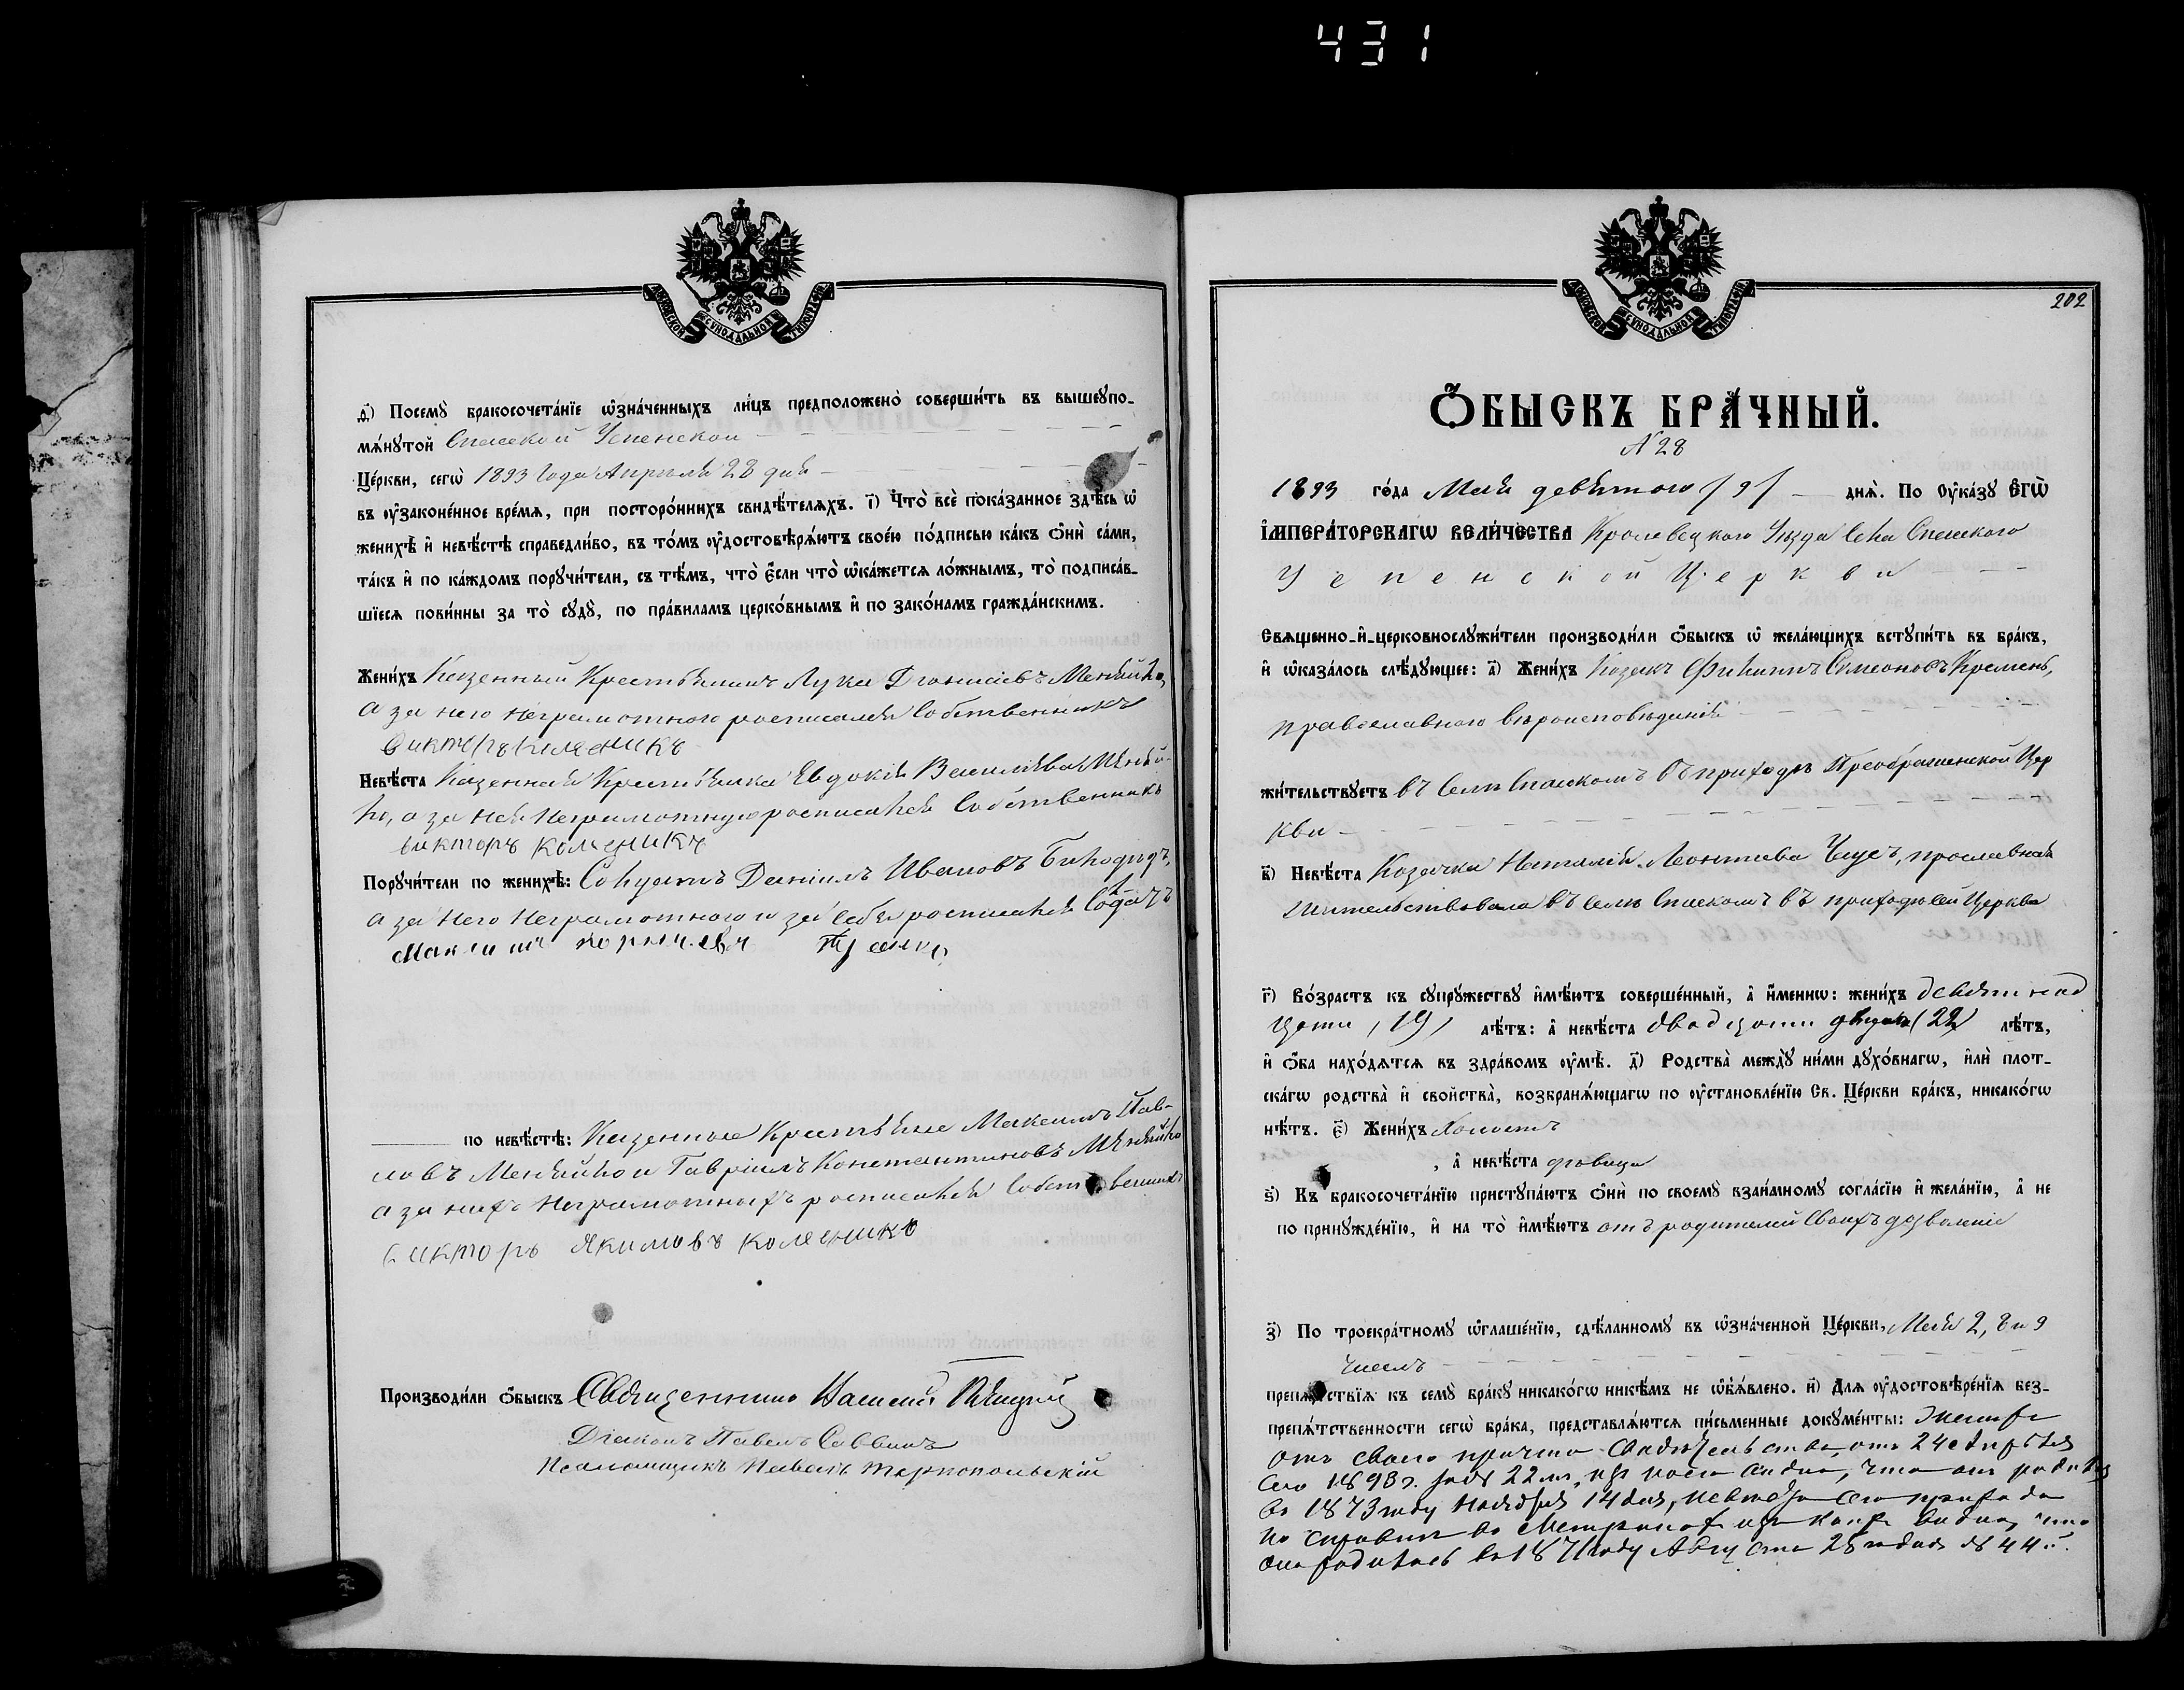 431
МОСКОВСКОЙ СѴНОДАЛЬНОЙ ТИПОГРАФІИ
д҃і) Посемꙋ̀ бракосочета́нїе ѡ҆зна́ченныхъ ли́цъ предположено̀ соверши́ть въ вышеꙋпо-
мѧ́нꙋтой Спасской Успенской
Це́ркви, сегѡ̀ 1893 года Апрѣля 28 дня
въ оу҆зако́нённое вре́мѧ, при посторо́ннихъ свидѣ́телѧхъ. і҃) Что̀ всѐ пока́занное здѣ́сь ѡ҆
женихѣ̀ и҆ невѣ́стѣ справедли́во, въ то́мъ оу҆достовѣрѧ́ютъ свое́ю по́дписью ка́къ ѻ҆нѝ са́ми,
та́къ и҆ по ка́ждомъ порꙋчи́тели, съ тѣ́мъ, что̀ є҆́сли что̀ ѡ҆ка́жетсѧ ло́жнымъ, то̀ подписа́в-
шїесѧ пови́нны за то̀ сꙋдꙋ̀, по пра́виламъ церко́внымъ и҆ по зако́намъ гражда́нскимъ.
Жени́хъ Казенный Крестьянинъ Лука Діонисіевъ Меняйло,
а за него неграмотного росписался Собственникъ
Викторъ Коленикъ
Невѣ́ста Казенная Крестьянка Евдокія Васильева Меняй-
ло, а за нея неграмотную росписался Собственникъ
викторъ коленикъ
Порꙋчи́тели по женихѣ̀: Солдатъ Даніилъ Ивановъ
а за него неграмотного и за себя росписался Солдатъ
Максимъ
по невѣ́стѣ: Казенные Крестьяне Максимъ Пав-
ловъ Меняйло и Гавріилъ Константиновъ Меняйло
а за нихъ неграмотныхъ росписался Собственникъ
Викторъ Якимовъ коленикъ
Производи́ли ѻ҆́быскъ Священникъ Василій
Діаконъ Павелъ Саввинъ
Псаломщикъ Павелъ Тарнопольскій
МОСКОВСКОЙ СѴНОДАЛЬНОЙ ТИПОГРАФІИ
202
Ѻ҆́БЫСКЪ БРА́ЧНЫЙ.
№ 28
1893 го́да Мая девятого /9/ днѧ̀. По Оу҆ка́зꙋ Є҆ГѠ̀
І҆МПЕРА́ТОРСКАГѠ ВЕЛИ́ЧЕСТВА Кролевецкого Уѣзда Села Спасского
Успенской Церкви
Свѧще́нно-и҆-церковнослꙋжи́тели производи́ли ѻ҆́быскъ ѡ҆ жела́ющихъ встꙋпи́ть въ бра́къ,
и҆ ѡ҆каза́лось слѣ́дꙋющее: а҃) Жени́хъ Козакъ Филиппъ Симеоновъ Кремень,
православного вѣроисповѣданія
жи́тельствꙋетъ въ Селѣ Спасскомъ въ приходѣ Преображенской Цер
кви
в҃) Невѣ́ста Козачка Наталія Леонтіева
жительствовала въ Селѣ Спасскомъ въ приходѣ сей Церкви
г҃) Во́зрастъ къ сꙋпрꙋ́жествꙋ и҆мѣ́ютъ соверше́нный, а҆ и҆́меннѡ: жени́хъ девятнад
цати /19/ лѣ́тъ: а҆ невѣ́ста двадцати двухъ (22) лѣ́тъ,
и҆ ѻ҆́ба нахо́дѧтсѧ въ здра́вомъ оу҆мѣ̀. д҃) Родства̀ междꙋ̀ ни́ми дꙋхо́внагѡ, и҆лѝ плот-
ска́гѡ родства̀ и҆ сво́йства, возбранѧ́ющагѡ по оу҆становле́нїю Св. Це́ркви бра́къ, никако́гѡ
нѣ́тъ. є҃) Жени́хъ Холостъ
, а҆ невѣ́ста дѣвица
ѕ҃) Къ бракосочета́нїю пристꙋпа́ютъ ѻ҆нѝ по своемꙋ̀ взаи́мномꙋ согла́сїю и҆ жела́нїю, а҆ не
по принꙋжде́нїю, и҆ на то̀ и҆мѣ́ютъ отъ родителей своихъ дозволеніе
з҃) По троекра́тномꙋ ѡ҆глаше́нїю, сдѣ́ланномꙋ въ ѡ҆зна́ченной Це́ркви, Мая 2, 8 и 9
Числъ
препѧ́тствїѧ къ семꙋ̀ бра́кꙋ никако́гѡ никѣ́мъ не ѡ҆б̾ѧ́влено. и҃) Для оу҆достовѣре́нїѧ без-
препѧ́тственности сегѡ̀ бра́ка, представлѧ́ютсѧ пи́сьменные докꙋме́нты: Жениха
отъ своего причта Свидѣтельство отъ 24
сего 1893 г. за № 22 изъ коего видно, что онъ родился
въ 1873 году Ноября 14 дня, невѣста сего прихода
по справкѣ въ Метрикахъ изъ коихъ видно что
она родилась въ 1871 году Августа 25 дня № 44